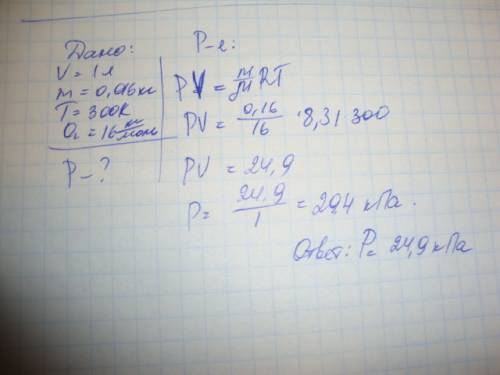 Дано:
V = 1 л
m = 0,016 кг
T = 300К
O₂ = 16 кг/моль
P - ?
Р-е:
PV = m/M RT
PV = 0,16/16 · 8,31 300
PV = 24,9
P = 24,9/1 = 29,4 кПа.
Ответ: P = 24,9 кПа